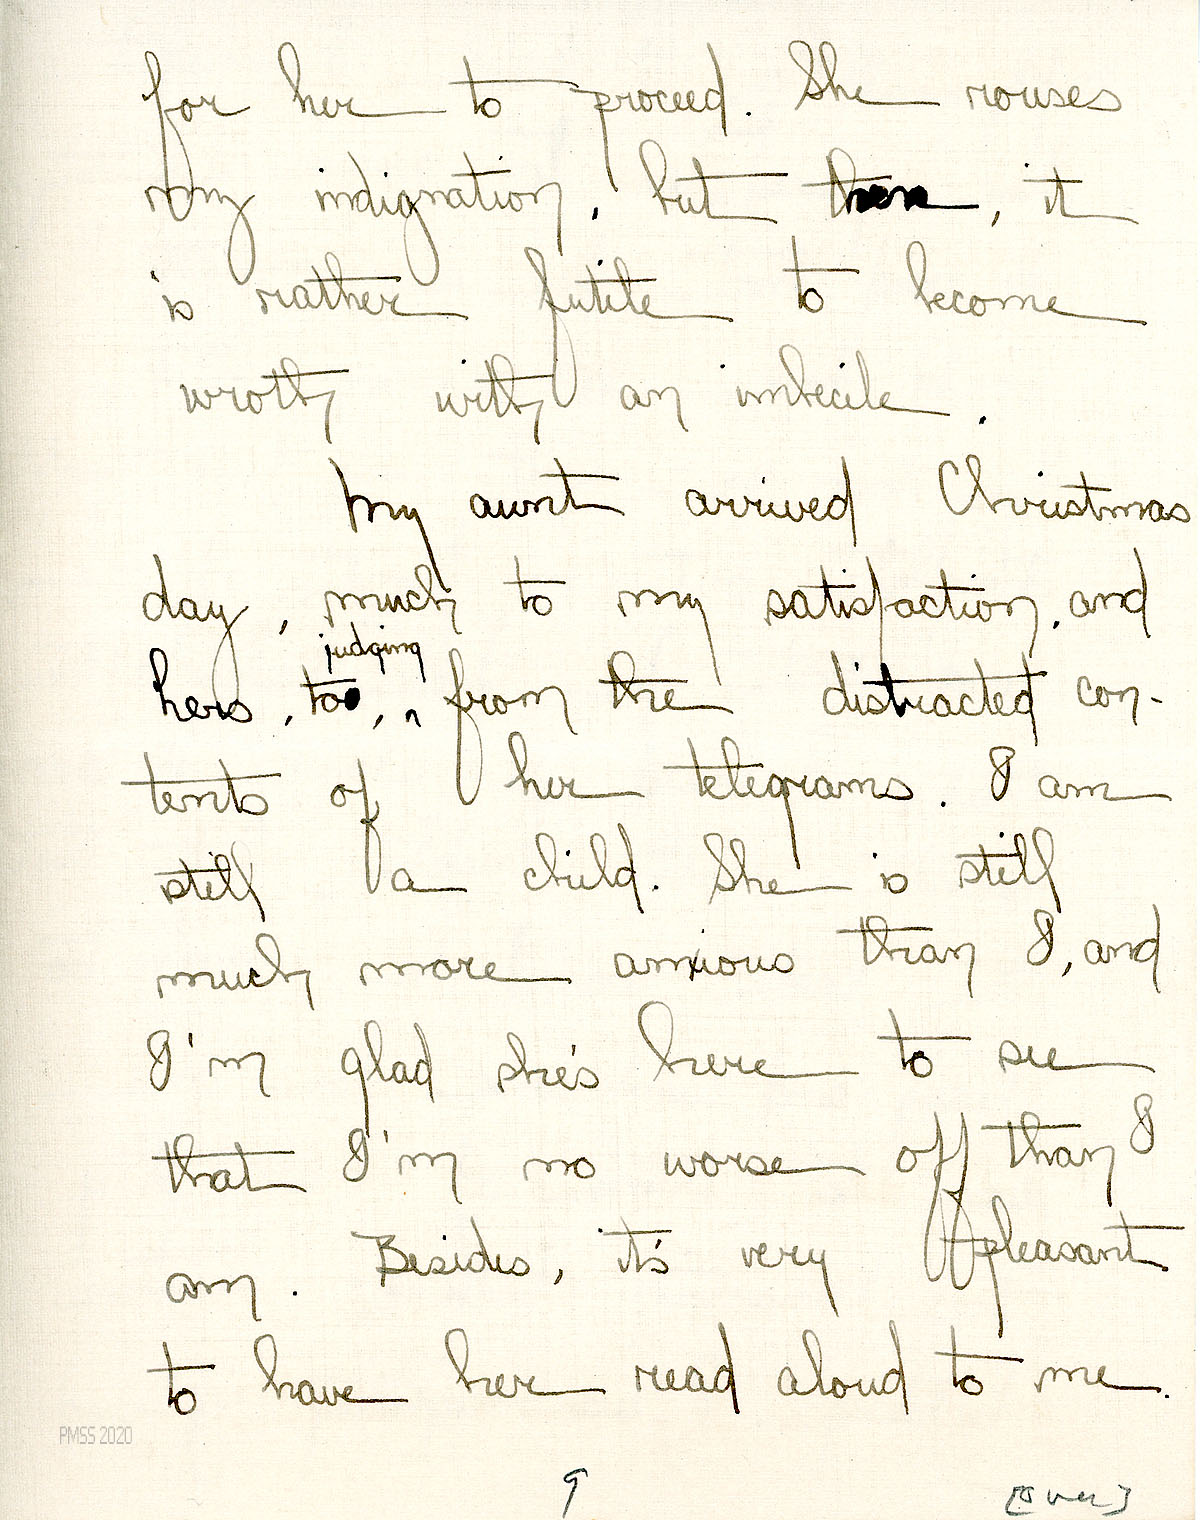 for her to proceed. She rouses
my indignation, but then, it
is rather futile to become
wroth with an imbecile.
My aunt arrived Christmas
day, much to my satisfaction, and
judging
hers, too, ^ from the distracted con-
tents of her telegrams. I am
still a child. She is still
much more anxious than I, and
I'm glad she's here to see
that I'm no worse off than I
am. Besides, it's very pleasant
to have her read aloud to me.
PMSS 2020
9
[over]